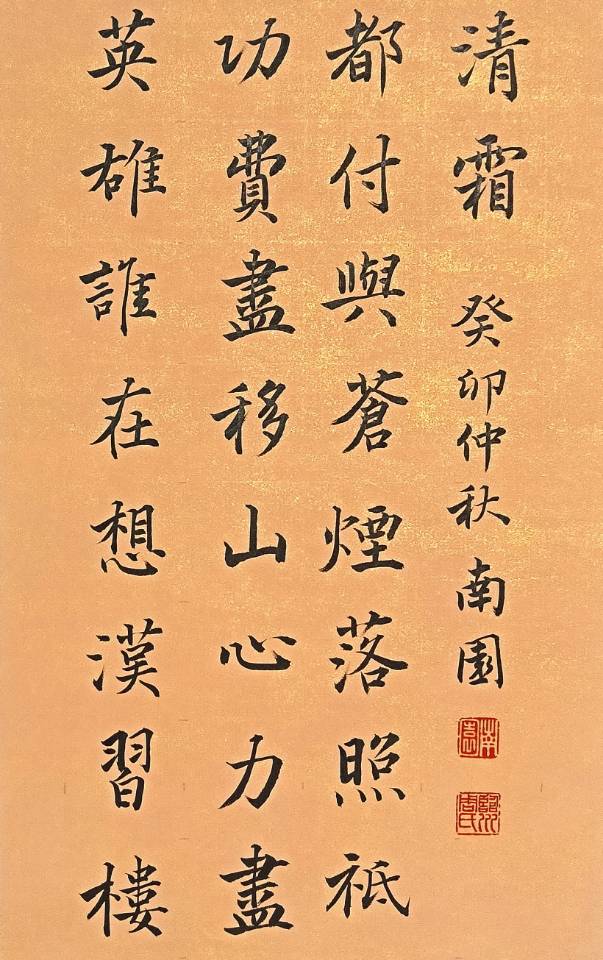 英雄誰在想漢習樓
功費盡移山心力盡
都付與蒼煙落照祗
清霜 癸卯仲秋南園
南園